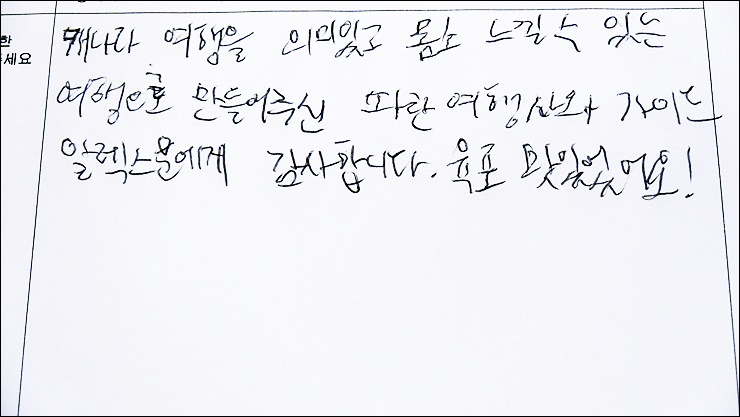 7개나라 여행을 의미있고 몸소 느낄수 있는
여행으로 만들어주신 파란여행사와 가이드
알렉스문에게 감사합니다. 육포 맛있었어요!
한
세요